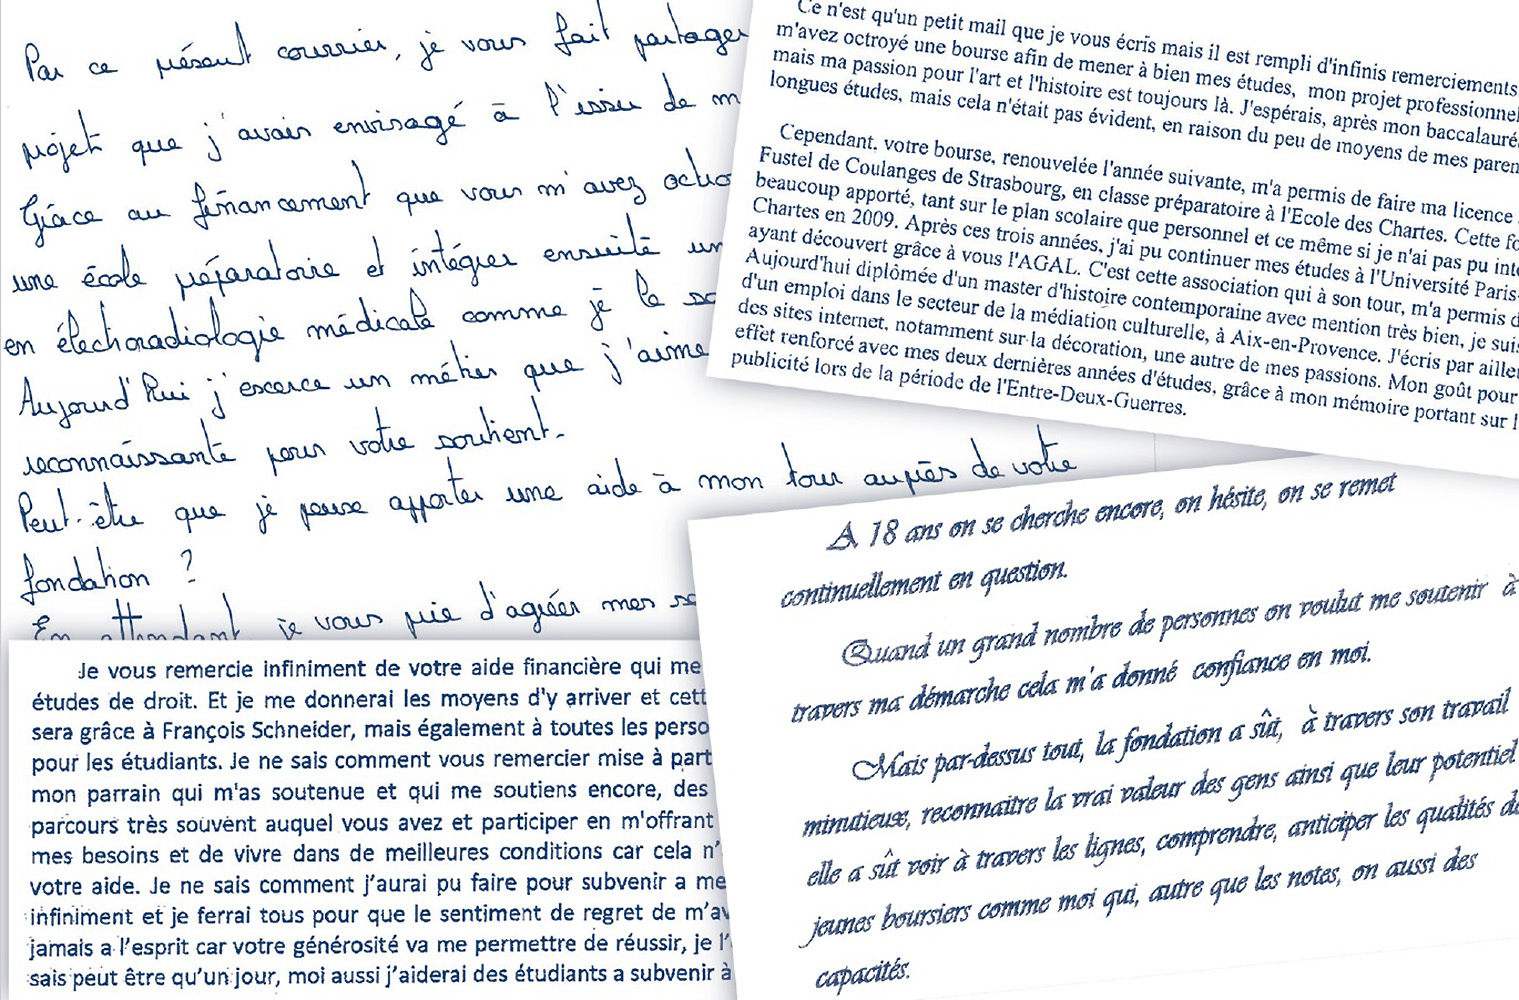 Par ce présent courrier, je vous fait partager
projet que j'avais envisagé à l'issu de m
Grâce au financement que vous m'avez octro
une école préparatoire et intégrer ensuite un
en électroradiologie médicale comme je le so
Aujourd'hui j'exerce un métier que j'aime
reconnaissante pour votre soutient.
Peut-être que je peuxe apporter une aide à mon tour auprès de votre
fondation ?
En attendant je vous prie d'agréer mes sa
Ce n'est qu'un petit mail que je vous écris mais il est rempli d'infinis remerciements.
m'avez octroyé une bourse afin de mener à bien mes études, mon projet professionnel
mais ma passion pour l'art et l'histoire est toujours là. J'espérais, après mon baccalauré
longues études, mais cela n'était pas évident, en raison du peu de moyens de mes paren
Cependant, votre bourse, renouvelée l'année suivante, m'a permis de faire ma licence
Fustel de Coulanges de Strasbourg, en classe préparatoire à l'Ecole des Chartes. Cette fo
beaucoup apporté, tant sur le plan scolaire que personnel et ce même si je n'ai pas pu inté
Chartes en 2009. Après ces trois années, j'ai pu continuer mes études à l'Université Paris-
ayant découvert grâce à vous l'AGAL. C'est cette association qui à son tour, m'a permis d
Aujourd'hui diplômée d'un master d'histoire contemporaine avec mention très bien, je suis
d'un emploi dans le secteur de la médiation culturelle, à Aix-en-Provence. J'écris par ailleu
des sites internet, notamment sur la décoration, une autre de mes passions. Mon goût pour
effet renforcé avec mes deux dernières années d'études, grâce à mon mémoire portant sur l
publicité lors de la période de l'Entre-Deux-Guerres.
A 18 ans on se cherche encore, on hésite, on se remet
continuellement en question.
Quand un grand nombre de personnes on voulut me soutenir à
travers ma démarche cela m'a donné confiance en moi.
Mais par-dessus tout, la fondation a sût, à travers son travail
minutieux, reconnaitre la vrai valeur des gens ainsi que leur potentiel
elle a sût voir à travers les lignes, comprendre, anticiper les qualités de
jeunes boursiers comme moi qui, autre que les notes, on aussi des
capacités.
Je vous remercie infiniment de votre aide financière qui me
études de droit. Et je me donnerai les moyens d'y arriver et cett
sera grâce à François Schneider, mais également à toutes les perso
pour les étudiants. Je ne sais comment vous remercier mise à part
mon parrain qui m'as soutenue et qui me soutiens encore, des
parcours très souvent auquel vous avez et participer en m'offrant
mes besoins et de vivre dans de meilleures conditions car cela n'
votre aide. Je ne sais comment j'aurai pu faire pour subvenir a me
infiniment et je ferrai tous pour que le sentiment de regret de m'av
jamais a l'esprit car votre générosité va me permettre de réussir, je l'
sais peut être qu'un jour, moi aussi j'aiderai des étudiants a subvenir à